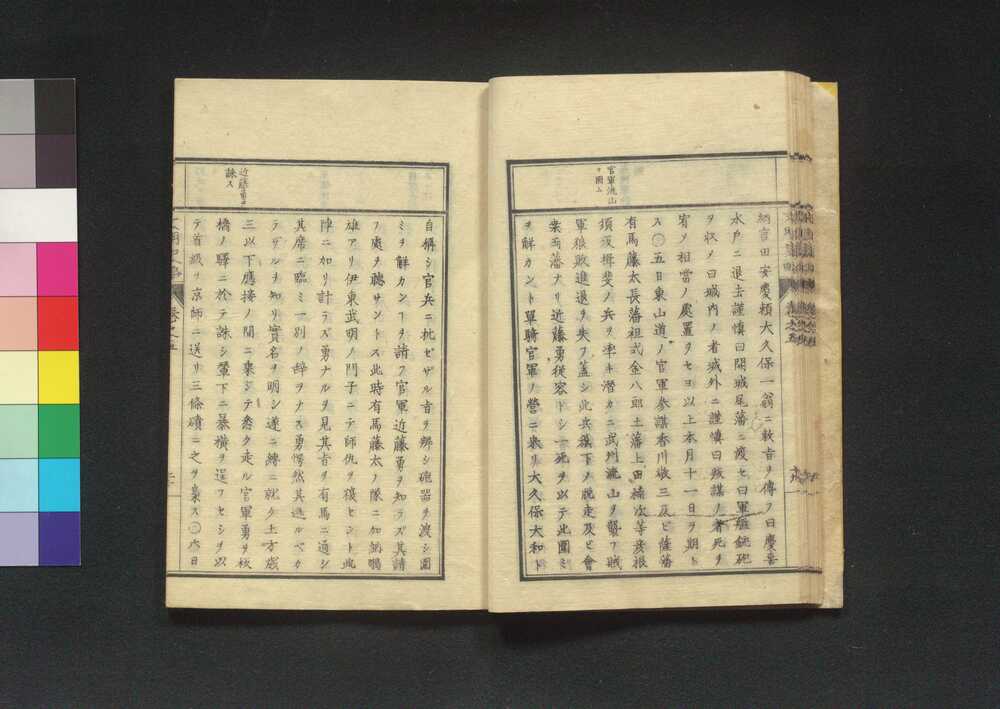 官軍流山
ヲ圍ム
納言田安慶頼大久保一翁ニ敕旨ヲ傳フ曰慶喜
水戸ニ退去謹愼曰開城尾藩ニ渡セ曰軍艦銃砲
ヲ収メ曰城内ノ者城外ニ謹愼曰叛謀ノ者死ヲ
宥メ相當ノ處置ヲセヨ以上本月十一日ヲ期ト
ス○五日東山道ノ官軍参謀香川敬三及ヒ薩藩
有馬藤太長藩祖式金八郎土藩上田楠次等彦根
須坂揖斐ノ兵ヲ率キ潜カニ武州流山ヲ襲フ賊
軍狼敗進退ヲ失フ蓋シ此兵幕下ノ脱走及ヒ會
桒両藩ナリ近藤勇従容トシ一死ヲ以テ此圍ミ
ヲ解カント單騎官軍ノ營ニ来リ大久保大和ト
近藤勇ヲ
誅ス
自稱シ官兵ニ抗セザル旨ヲ辨シ砲器ヲ渡シ圍
ミヲ解カンヿヲ請フ官軍近藤勇ヲ知ラズ其請
フ處ヲ聴サントス此時有馬藤太ノ隊ニ加納鵰
雄アリ伊東武明ノ門子ニテ師仇ヲ復セント此
陣ニ加リ計ラズ勇ナルヲ見其旨ヲ有馬ニ通シ
其席ニ臨ミ一別ノ辞ヲナス勇愕然其遁ルベカ
ラザルヲ知リ實名ヲ明シ遂ニ縛ニ就ク土方歳
三以下應接ノ間ニ乗シテ悉ク走ル官軍勇ヲ板
橋ノ驛ニ於テ誅シ輦下ニ暴横ヲ逞フセシヲ以
テ首級ヲ京師ニ送リ三條磧ニ之ヲ梟ス○六日
巻之五